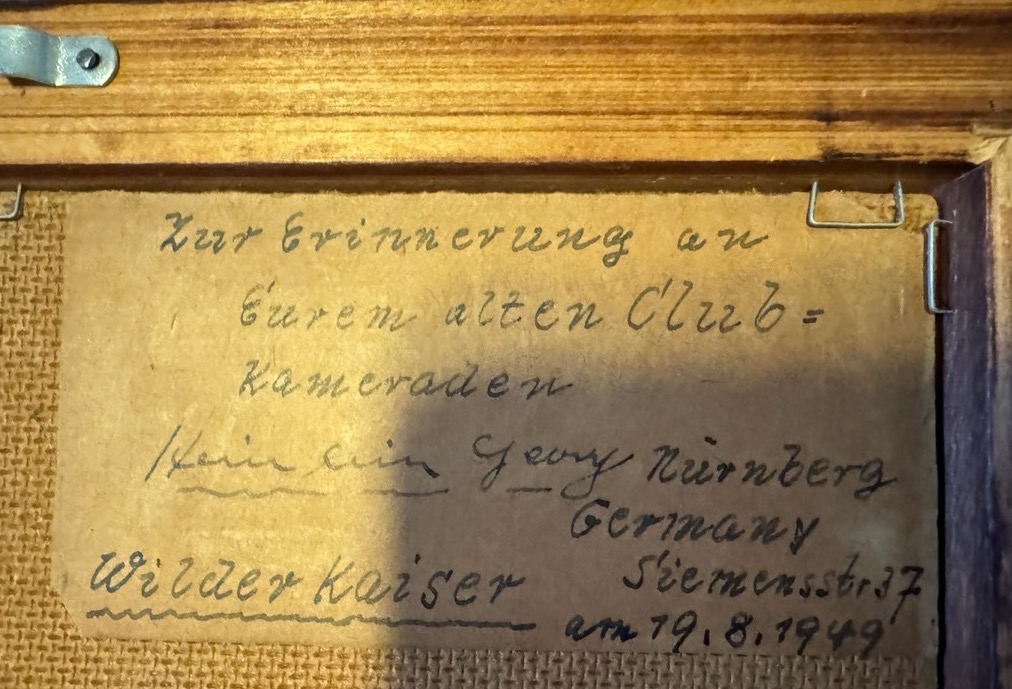 Zur Erinnerung an
Eurem alten Club=
Kameraden
Georg Nürnberg
Germany
Wilder Kaiser Siemensstr. 37
am 19. 8. 1949